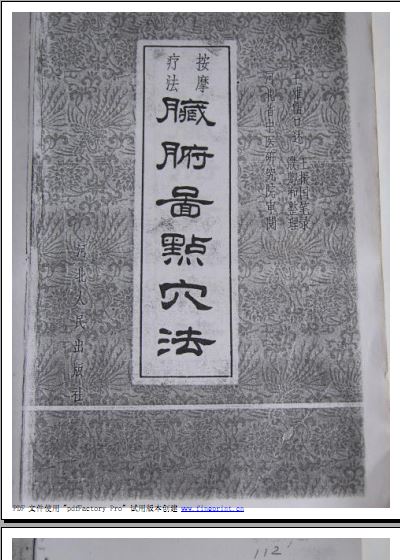 王雅儒口述
王振国笔录
整理
河北省中医研究院审阅
按摩
疗法
臟腑啚點穴法
河北人民出版社
PDF 文件使用 "pdfFactory Pro" 试用版本创建 www.fineprint.cn
112